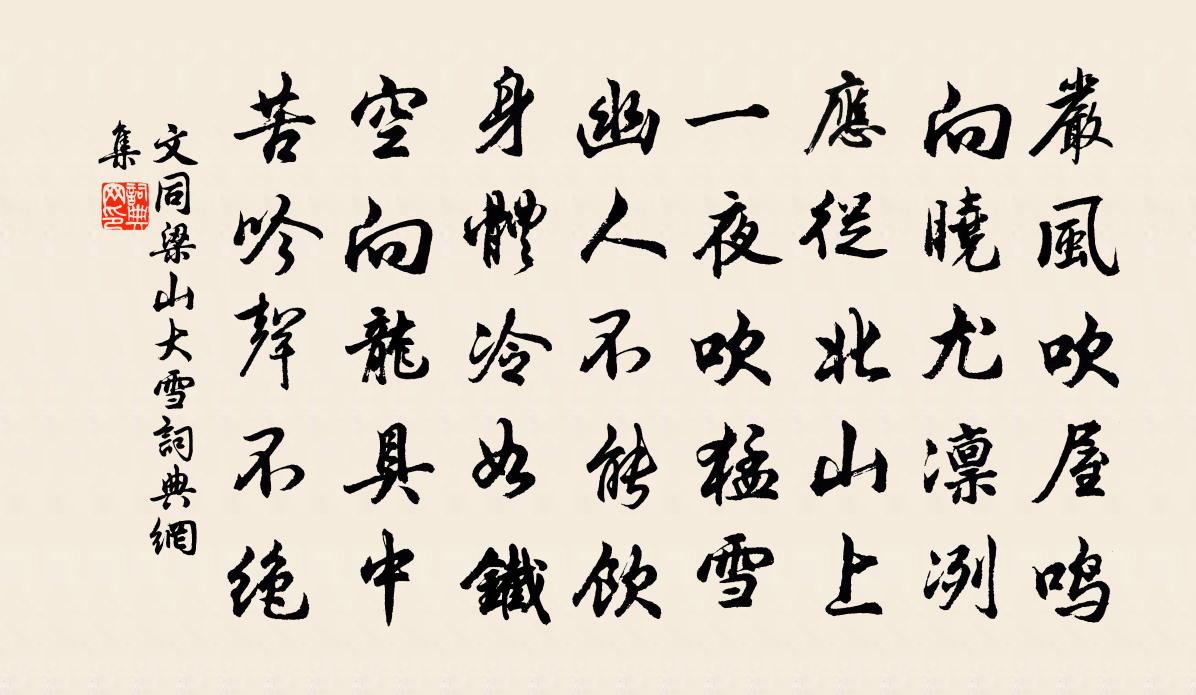 嚴風吹屋鳴
向曉尤凛冽
應從北山上
一夜吹猛雪
幽人不能飲
身體冷如鐵
空向龍具中
苦吟聲不绝
文同梁山大雪詞典網
集
詞典
网印